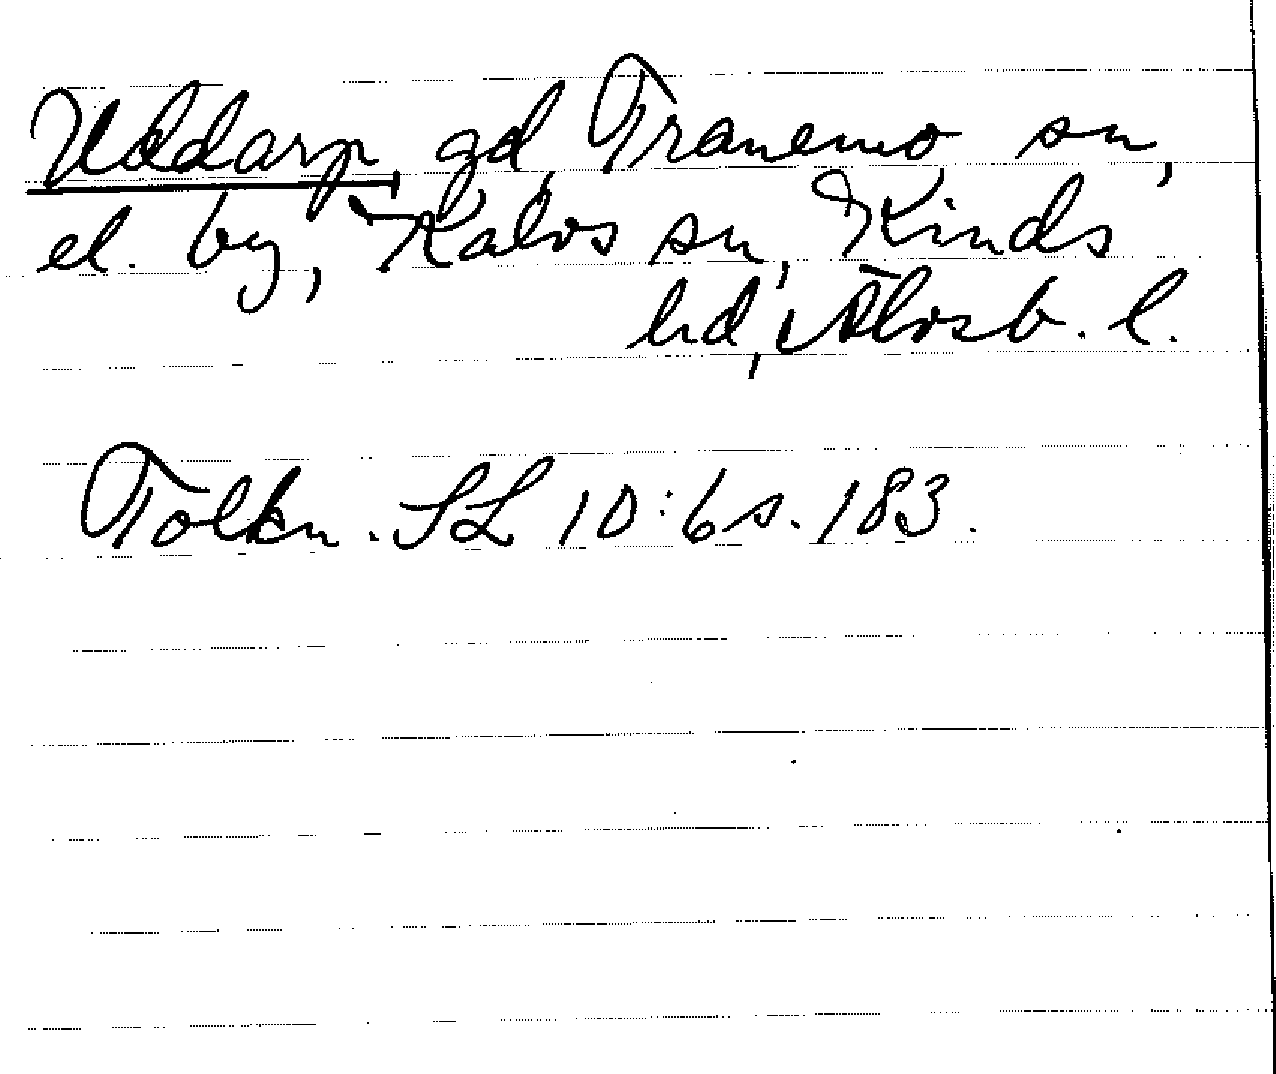 Uddarp, gd Tranemo sn,
el. by, Kalvs sn, Kinds
hd, Älvsb. l.
Tolkn. SL 10:6 s. 183.